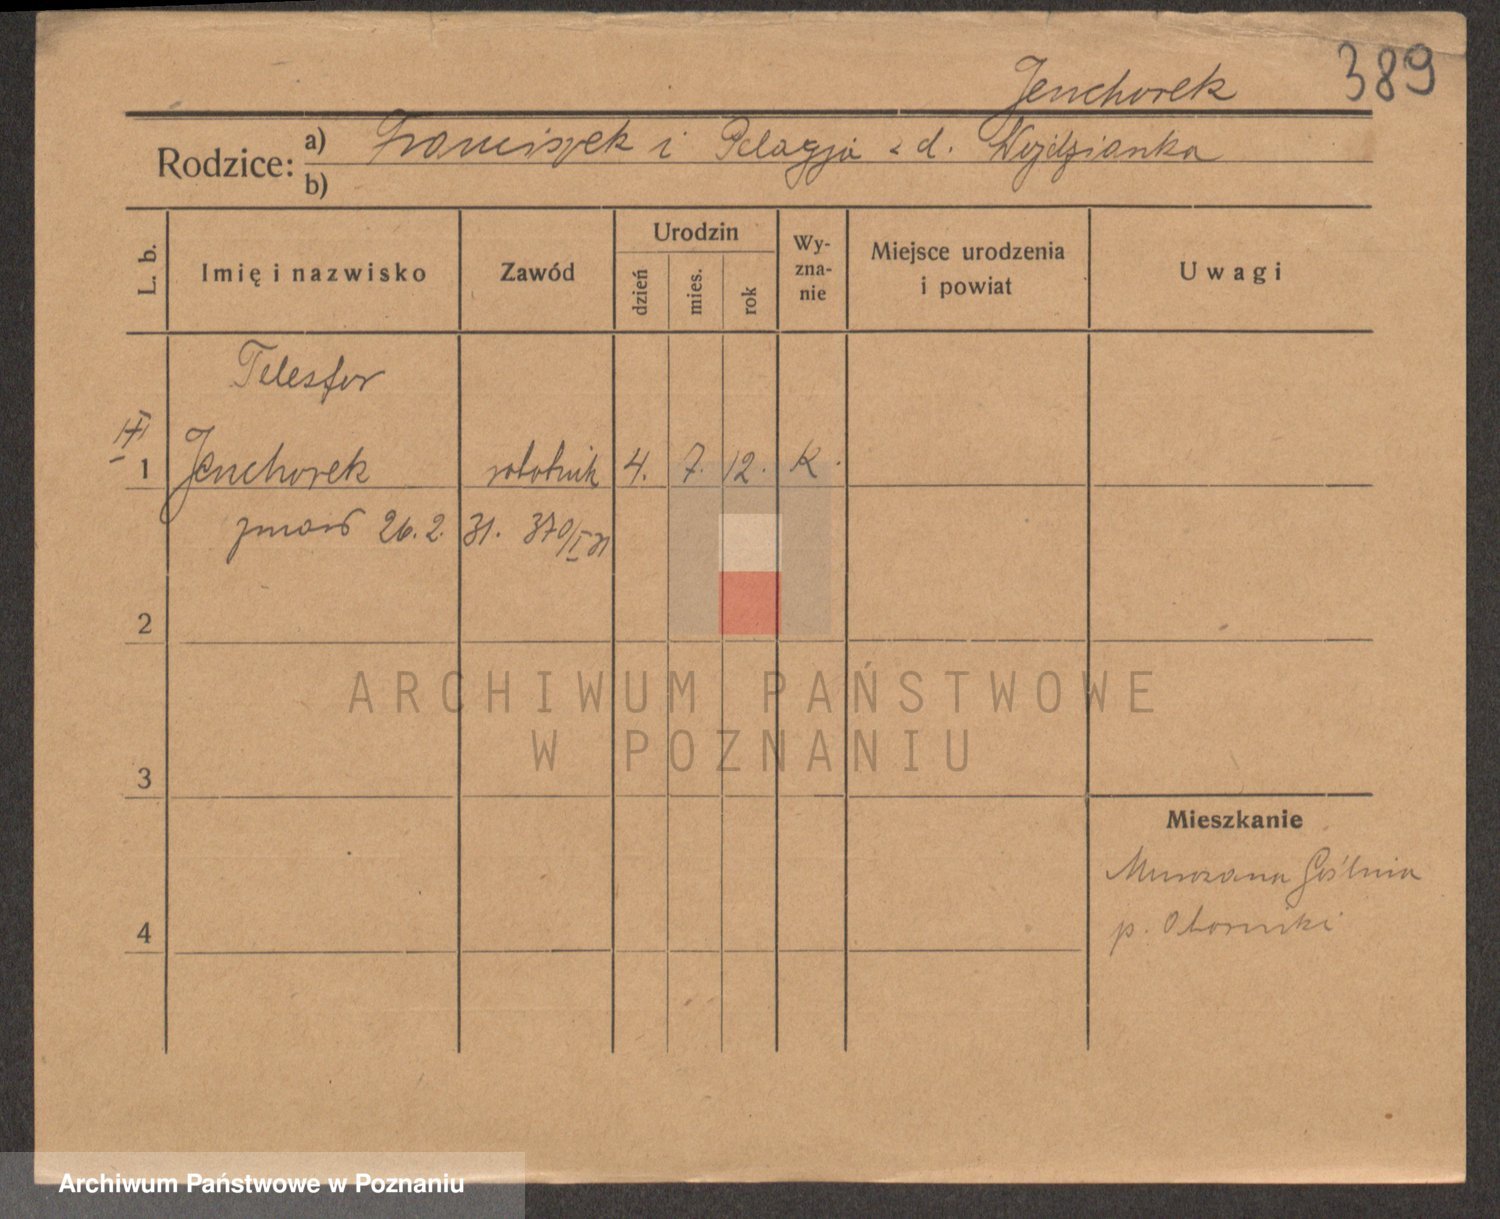 Jenchorek 389
Rodzice: a) Franciszek i Pelagja z d. Wojdzianka
b)
L. b. Imię i nazwisko Zawód Urodzin dzień mies. rok Wy-zna-nie Miejsce urodzenia i powiat Uwagi
Telesfor
1 Jenchorek robotnik 4. 7. 12. k.
zmarł 26. 2. 31. 370/I 31
2
ARCHIWUM PAŃSTWOWE
W POZNANIU
3
Mieszkanie
Murowana Goślina
4 p. Oborniki
Archiwum Państwowe w Poznaniu